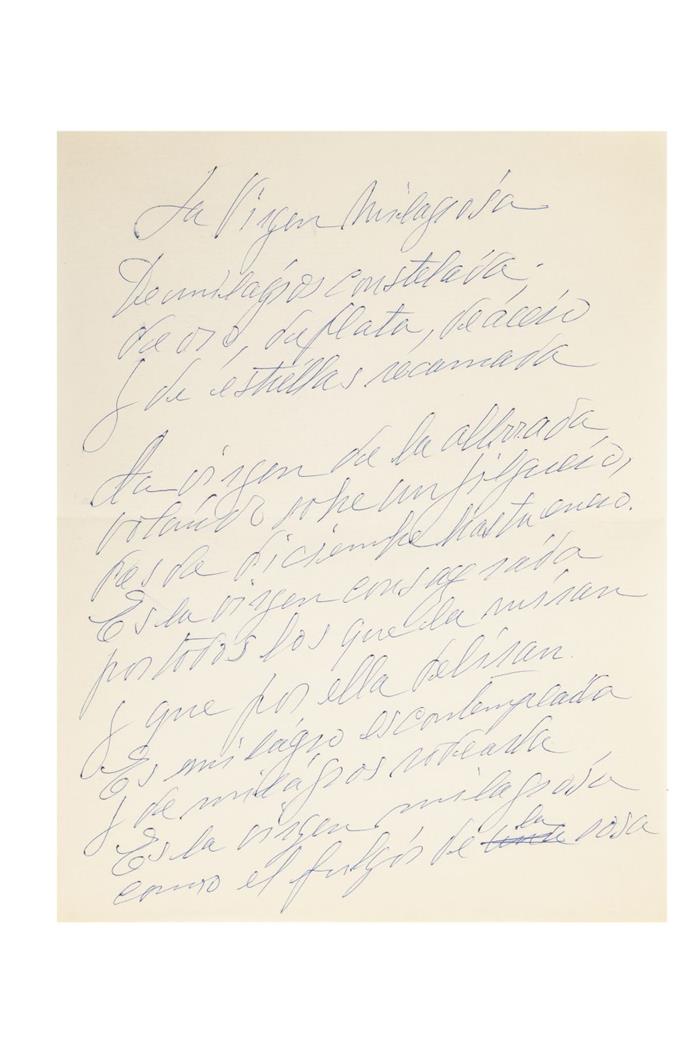 La Virgen Milagrosa
De milagros constelada,
de oro, de plata, de acero
y de estrellas recamada
La virgen de la alborada
volando sobre un jilguero,
desde diciembre hasta enero.
Es la virgen consagrada
por todos los que la miran
y que por ella deliran.
Es milagro es contemplada
y de milagros rodeada
Es la virgen milagrosa
como el fulgor de la rosa